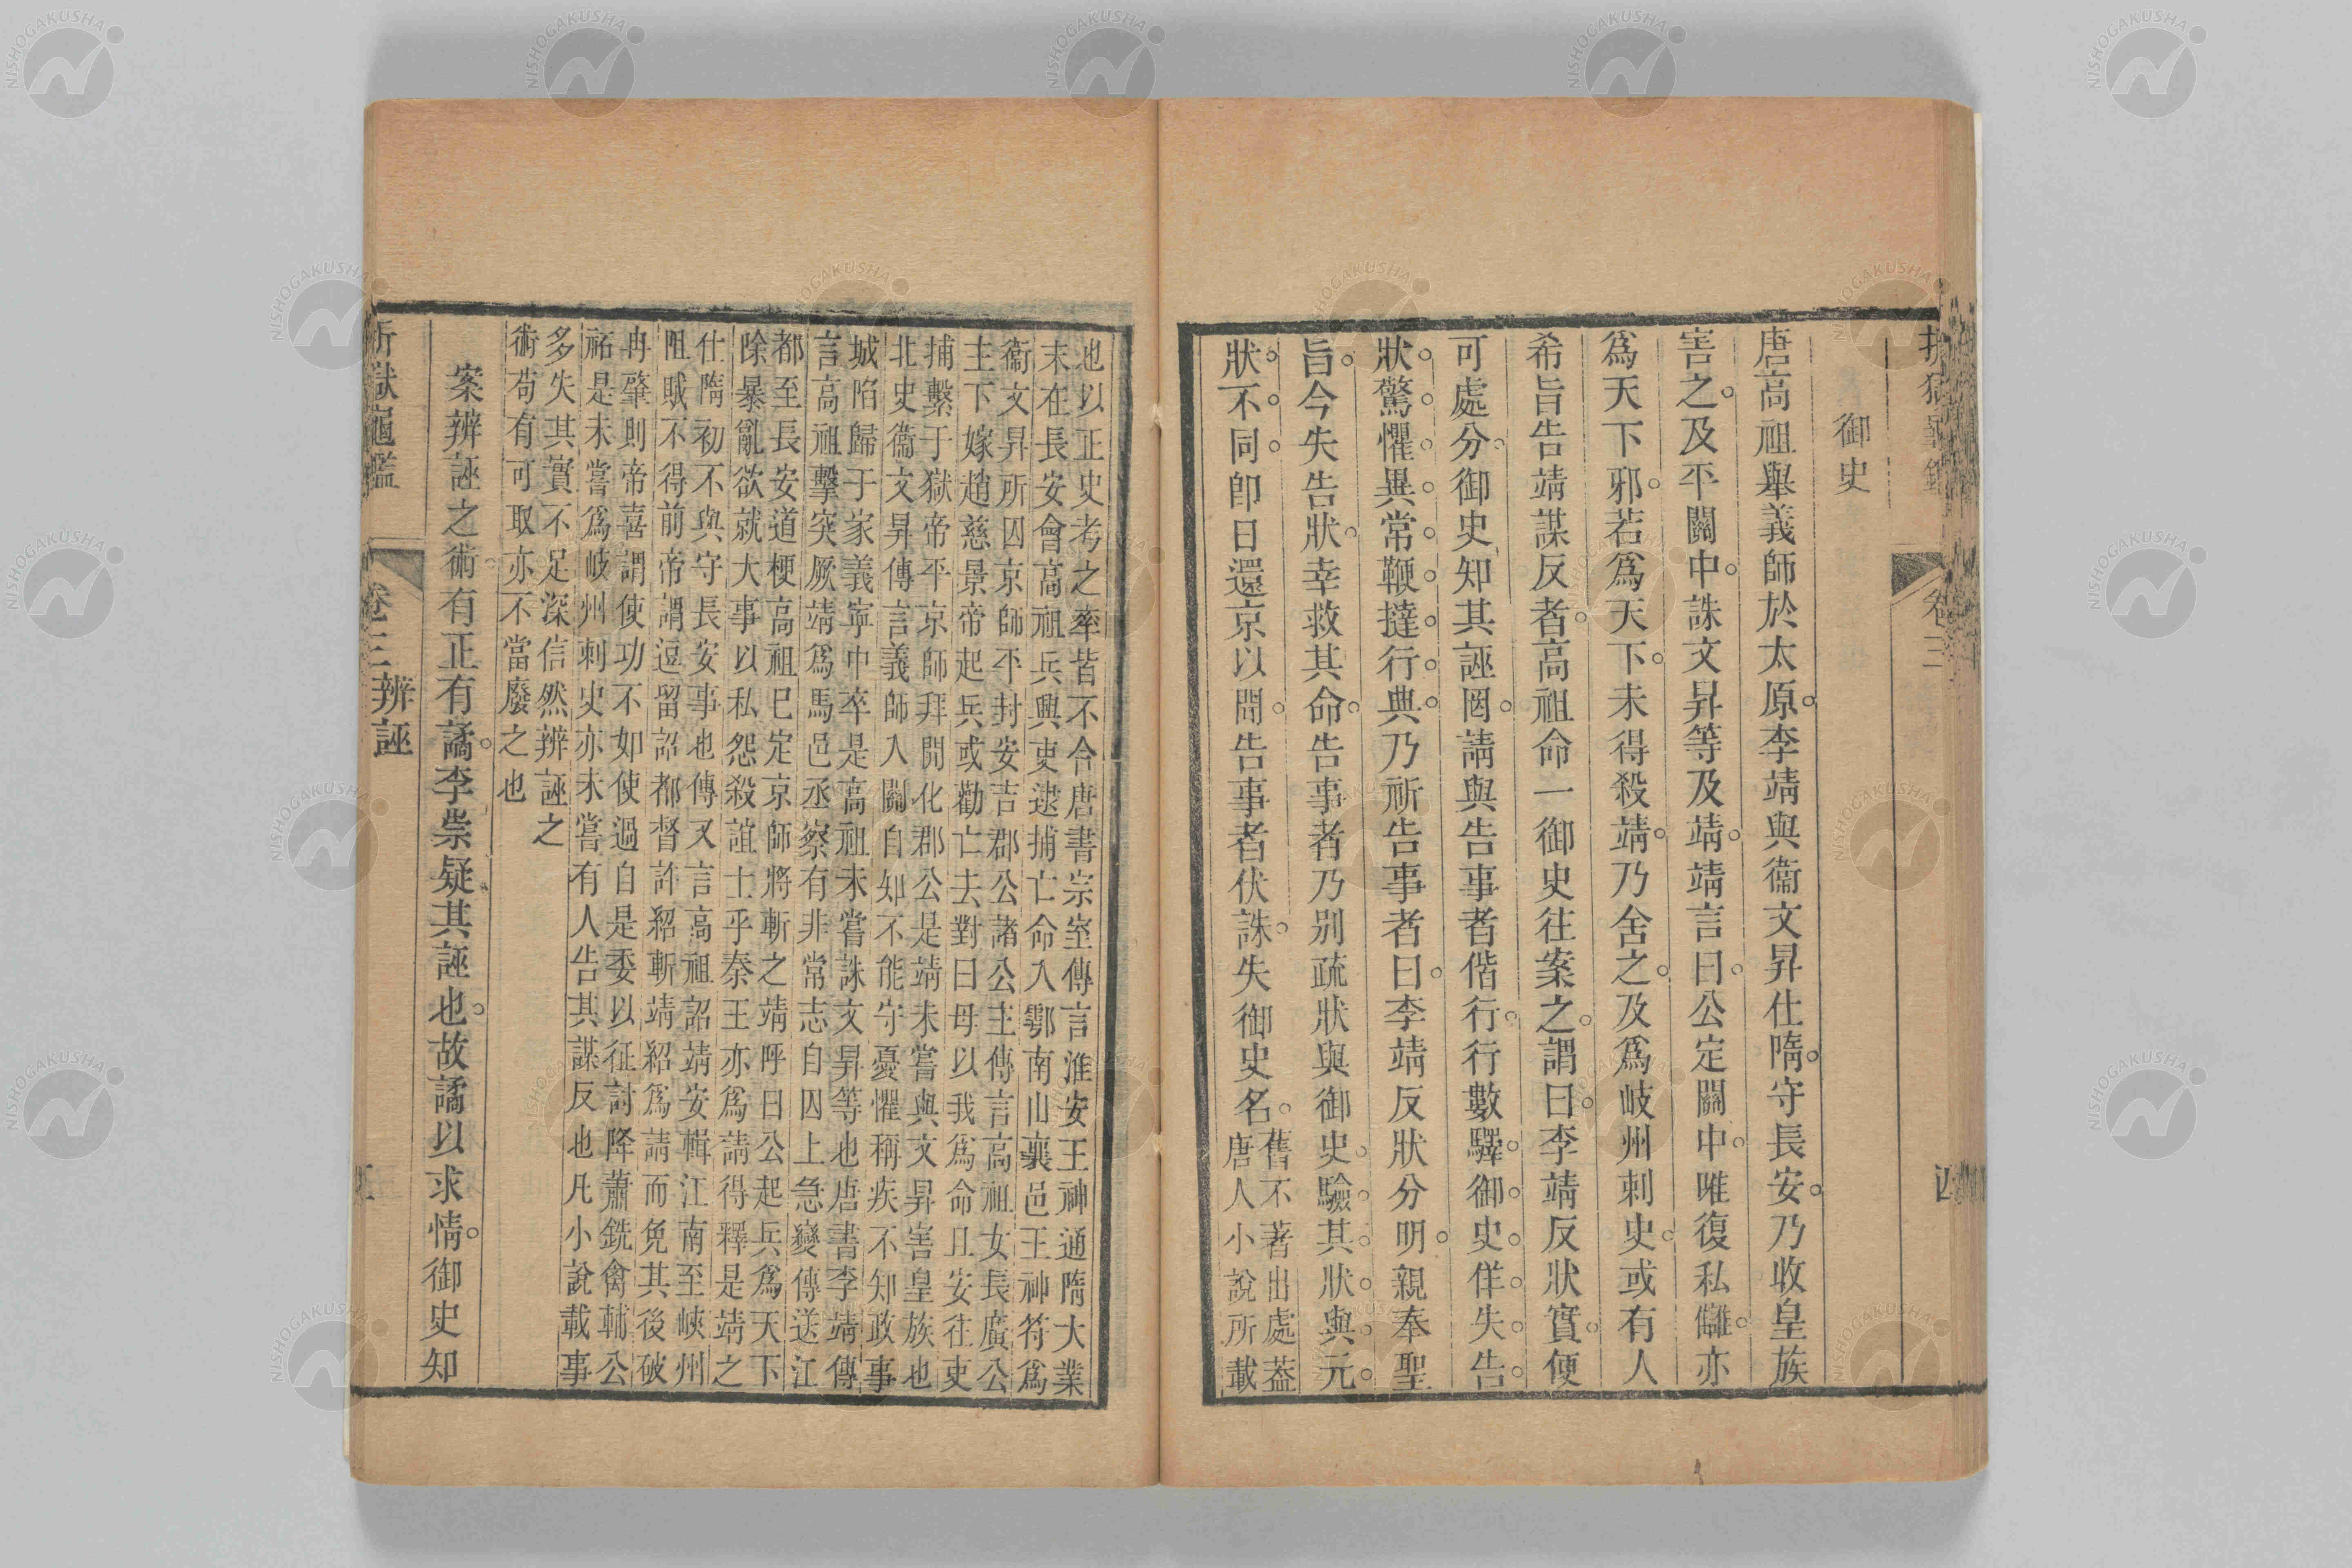 御史
唐高祖舉義師於太原。李靖與衞文昇仕隋。守長安。乃收皇族
害之。及平關中。誅文昇等及靖。靖言曰。公定關中。唯復私讎。亦
爲天下邪。若爲天下。未得殺靖。乃舍之。及爲岐州刺史。或有人
希旨告靖謀反者。高祖命一御史往案之。謂曰。李靖反狀實。便
可處分。御史知其誣罔。請與告事者偕行。行數驛。御史。佯。失。告。
狀。驚。懼。異。常。鞭。撻。行。典。乃祈告事者曰。李靖反狀分明。親奉聖
旨。今失告狀。幸救其命。告事者乃别疏狀與御史。驗。其。狀。與。元。
狀。不。同。卽日還京以聞。告事者伏誅。失御史名。舊不著出處葢
唐人小說所載
也以正史考之率皆不合唐書宗室傳言淮安王神通隋大業
末在長安會高祖兵興吏逮捕亡命入鄠南山襄邑王神符爲
衞文昇所囚京師平封安吉郡公諸公主傳言高祖女長廣公
主下嫁趙慈景帝起兵或勸亡去對曰母以我爲命且安往吏
捕繫于獄帝平京師拜開化郡公是靖未嘗與文昇害皇族也
北史衞文昇傳言義師入關自知不能守憂懼稱疾不知政事
城陷歸于家義寧中卒是高祖未嘗誅文昇等也唐書李靖傳
言高祖擊突厥靖爲馬邑丞察有非常志自囚上急變傳送江
都至長安道梗高祖已定京師將斬之靖呼曰公起兵爲天下
除暴亂欲就大事以私怨殺誼士乎秦王亦爲請得釋是靖之
仕隋初不與守長安事也傳又言高祖詔靖安輯江南至峽州
阻賊不得前帝謂逗留詔都督許紹斬靖紹爲請而免其後破
冉肇則帝喜謂使功不如使過自是委以征討降蕭銑禽輔公
祏是未嘗爲岐州刺史亦未嘗有人告其謀反也凡小說載事
多失其實不足深信然辨誣之
術苟有可取亦不當廢之也
案辨誣之術。有正有譎。李崇疑其誣也。故譎以求情。御史知
折獄龜鑑 卷三 辨誣